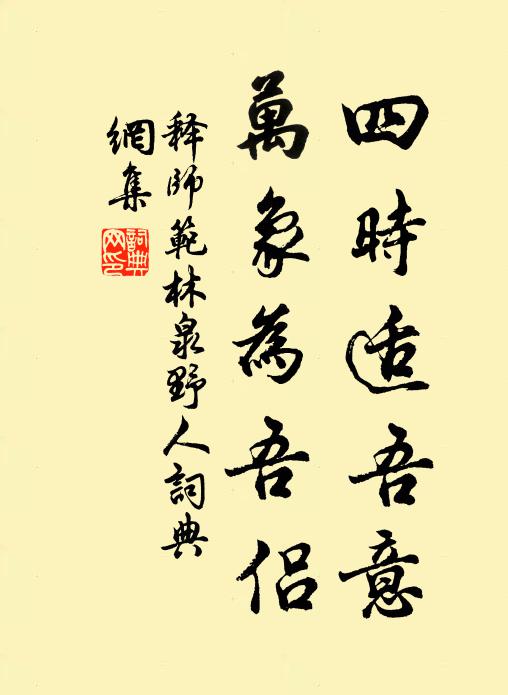 四時适吾意
萬象為吾侣
释師範林泉野人詞典
網集
詞典
网印